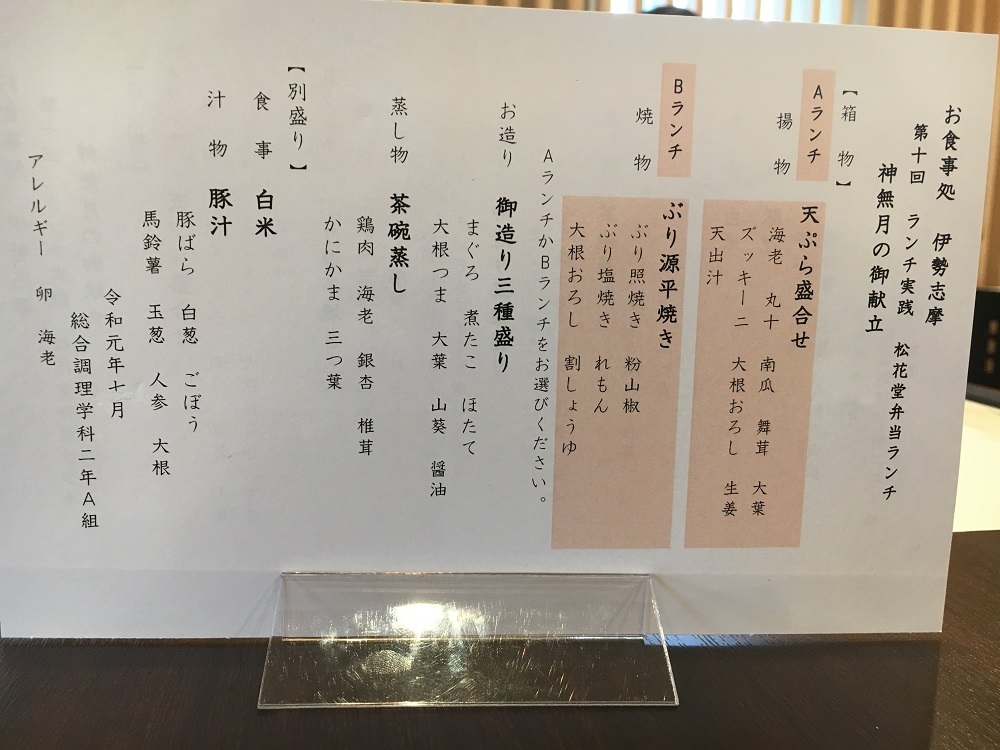 お食事処 伊勢志摩
第十回 ランチ実践 松花堂弁当ランチ
神無月の御献立
【箱物】
Aランチ
揚物 天ぷら盛合せ
海老 丸十 南瓜 舞茸 大葉
ズッキーニ 大根おろし 生姜
天出汁
Bランチ
焼物 ぶり源平焼き
ぶり照焼き 粉山椒
ぶり塩焼き れもん
大根おろし 割しょうゆ
AランチかBランチをお選びください。
お造り 御造り三種盛り
まぐろ 煮たこ ほたて
大根つま 大葉 山葵 醤油
蒸し物 茶碗蒸し
鶏肉 海老 銀杏 椎茸
かにかま 三つ葉
【別盛り】
食事 白米
汁物 豚汁
豚ばら 白葱 ごぼう
馬鈴薯 玉葱 人参 大根
令和元年十月
総合調理学科二年A組
アレルギー 卵 海老